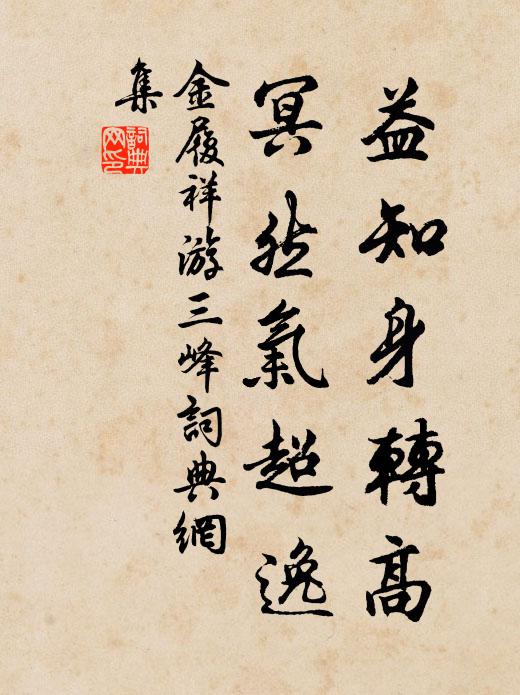 益知身轉高
冥然氣超逸
金履祥游三峰詞典網
集
詞典
网印